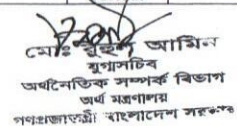 মোঃ রুহুল আমিন
যুগ্মসচিব
অর্থনৈতিক সম্পর্ক বিভাগ
অর্থ মন্ত্রণালয়
গণপ্রজাতন্ত্রী বাংলাদেশ সরকার